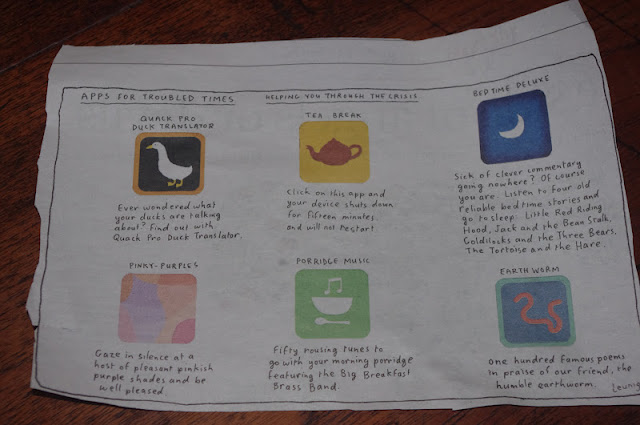 APPS FOR TROUBLED TIMES
HELPING YOU THROUGH THE CRISIS
QUACK PRO
DUCK TRANSLATOR
Ever wondered what
your ducks are talking
about? Find out with
Quack Pro Duck Translator.
TEA BREAK
Click on this app and
your device shuts down
for fifteen minutes
and will not restart.
BEDTIME DELUXE
Sick of clever commentary
going nowhere? Of course
you are. Listen to four old
reliable bedtime stories and
go to sleep: Little Red Riding
Hood, Jack and the Bean Stalk,
Goldilocks and the Three Bears,
The Tortoise and the Hare.
PINKY-PURPLES
Gaze in silence at a
host of pleasant pinkish
purple shades and be
well pleased
PORRIDGE MUSIC
Fifty rousing tunes to
go with your morning porridge
featuring the Big Breakfast
Brass Band.
EARTH WORM
One hundred famous poems
in praise of our friend, the
humble earthworm.
Leunig